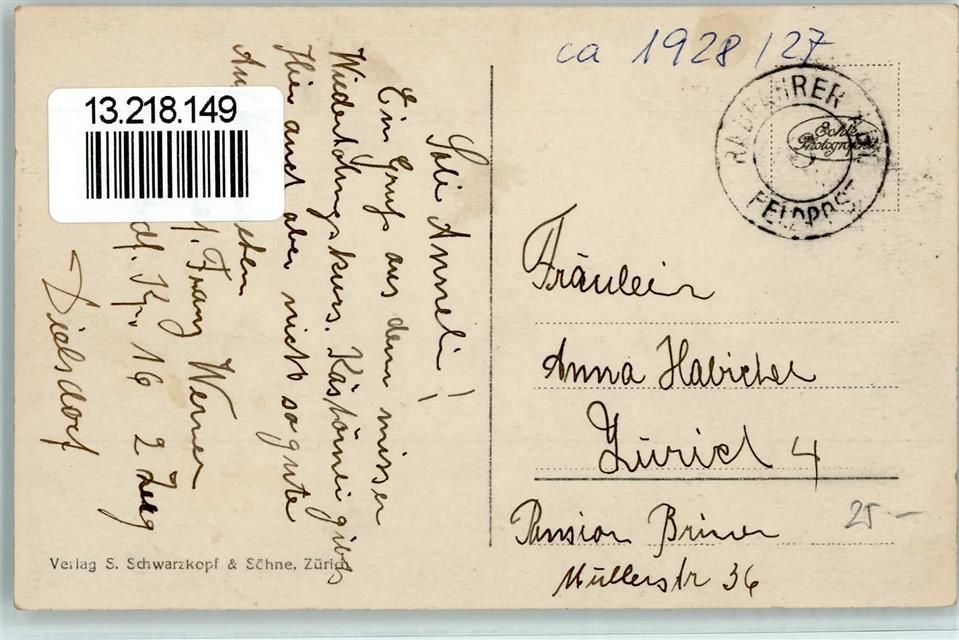 ca 1928/27
13.218.149
RADFAHRER
FELDPOST
Echte
Photographie
Sali Anneli!
Ein Gruss aus dem
Wiederholungskurs. gibts
Hier auch aber nicht so gute
Franz Werner
Kp. 16 2 Zug
Dielsdorf
Fräulein
Anna Habicher
Zürich 4
Pension Briner
Müllerstr 36
25 -
Verlag S. Schwarzkopf & Söhne, Zürich